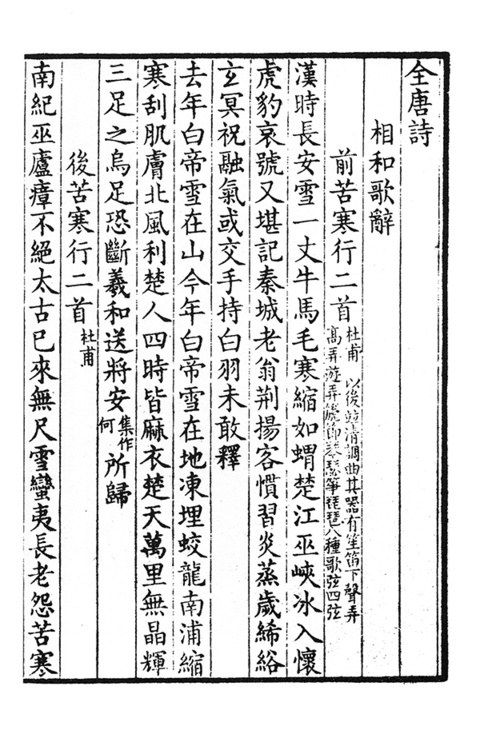 全唐詩
相和歌辭
前苦寒行二首 杜甫 以後竝清調曲其器有笙笛下聲弄
高弄遊弄篪節琴瑟箏琵琶八種歌弦四弦
漢時長安雪一丈牛馬毛寒縮如蝟楚江巫峽冰入懷
虎豹哀號又堪記秦城老翁荆揚客慣習炎蒸歲絺綌
玄冥祝融氣或交手持白羽未敢釋
去年白帝雪在山今年白帝雪在地凍埋蛟龍南浦縮
寒刮肌膚北風利楚人四時皆麻衣楚天萬里無晶輝
三足之烏足恐斷羲和送將安集作何所歸
後苦寒行二首杜甫
南紀巫廬瘴不絕太古已來無尺雪蠻夷長老怨苦寒